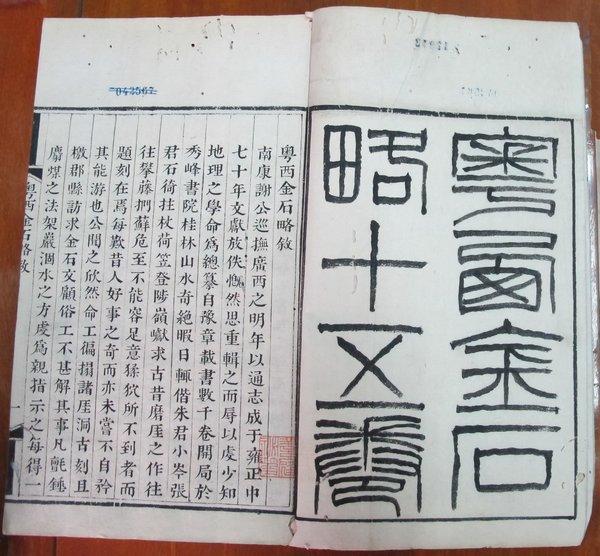 粵西金石
略十五卷
042567
粵西金石略敘
南康謝公巡撫廣西之明年以通志成于雍正中
七十年文獻放佚慨然思重輯之而辱以虔少知
地理之學命爲總纂自豫章載書數千卷開局於
秀峰書院桂林山水奇絕暇日輒偕朱君小岑張
君石倚拄杖荷笠登陟嶺巘求古昔磨厓之作往
往攀藤捫蘚危至不能容足意猿狖所不到者而
題刻在焉每歎昔人好事之奇而亦未嘗不自矜
其能游也公聞之欣然命工徧搨諸厓洞古刻且
檄郡縣訪求金石文顧俗工不甚解其事凡氈錘
麝煤之法架巖涸水之方虔爲親指示之每得一
粵西金石略敘
一